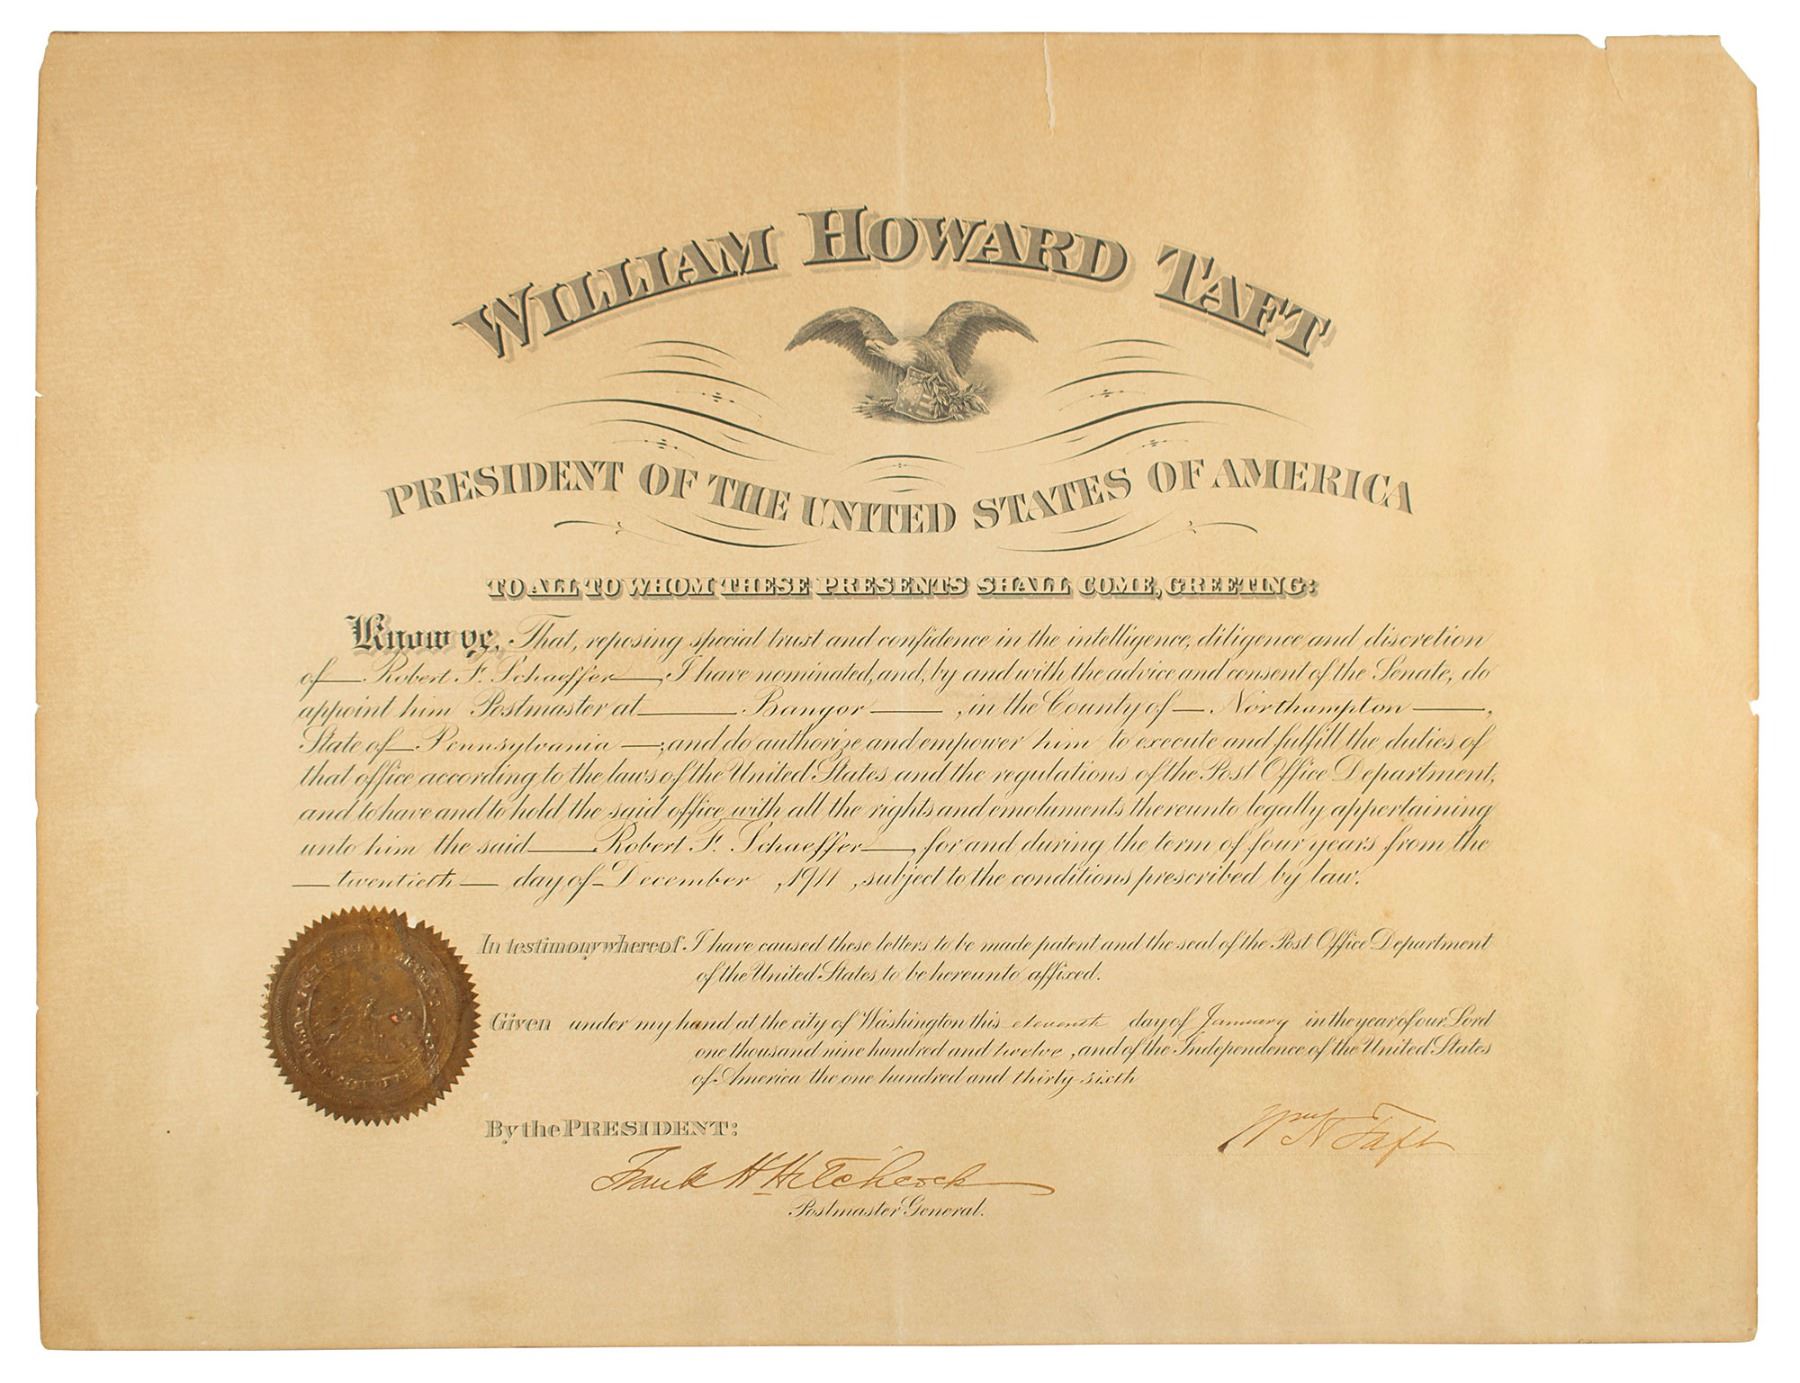 WILLIAM HOWARD TAFT
PRESIDENT OF THE UNITED STATES OF AMERICA
TO ALL TO WHOM THESE PRESENTS SHALL COME, GREETING:
Know ye, That, reposing special trust and confidence in the intelligence, diligence and discretion
of Robert F. Schaeffer, I have nominated, and, by and with the advice and consent of the Senate, do
appoint him Postmaster at Bangor, in the County of Northampton,
State of Pennsylvania; and do authorize and empower him to execute and fulfill the duties of
that office according to the laws of the United States and the regulations of the Post Office Department,
and to have and to hold the said office, with all the rights and emoluments thereunto legally appertaining
unto him the said Robert F. Schaeffer, for and during the term of four years from the
twentieth day of December, 1911, subject to the conditions prescribed by law.
In testimony whereof I have caused these letters to be made patent and the seal of the Post Office Department
of the United States to be hereunto affixed.
Given under my hand at the city of Washington this eleventh day of January in the year of our Lord
one thousand nine hundred and twelve, and of the Independence of the United States
of America the one hundred and thirty sixth
By the PRESIDENT:
Wm H Taft
Frank H Hitchcock
Postmaster General.